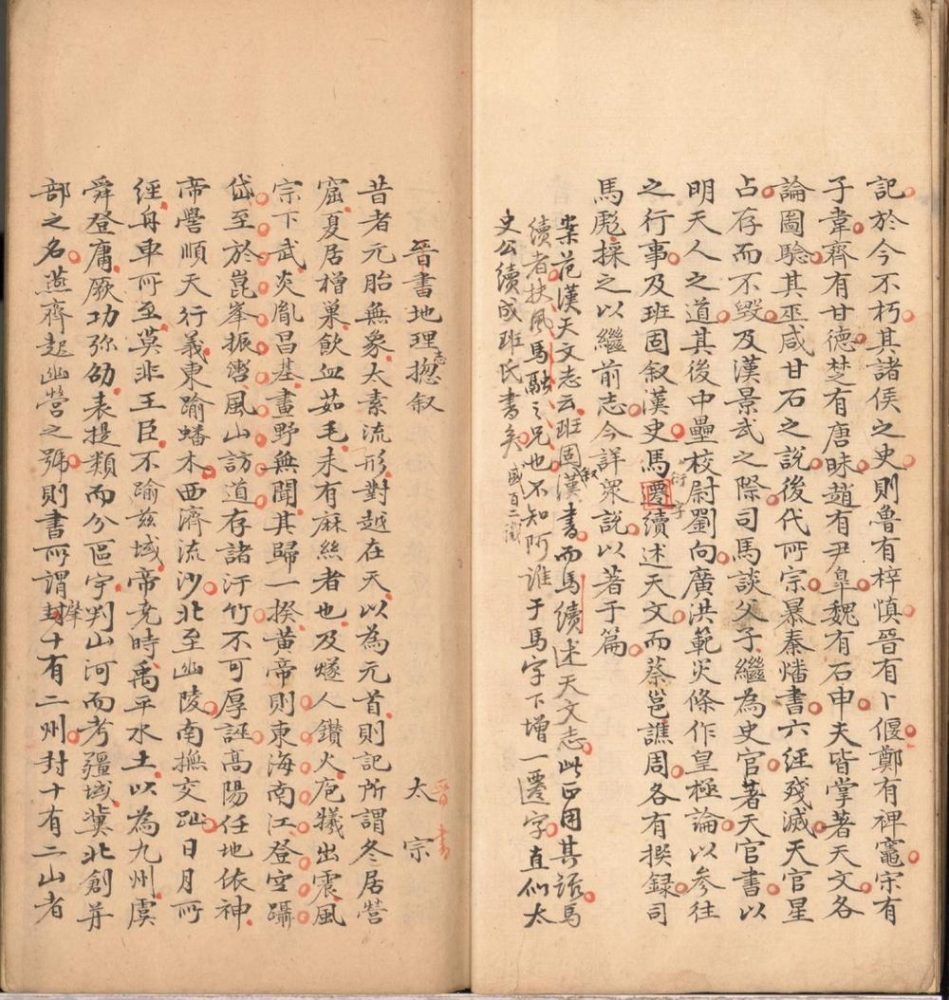 記於今不朽其諸侯之史則魯有梓慎晉有卜偃鄭有裨竈宋有
子韋齊有甘德楚有唐昧趙有尹臯魏有石申夫皆掌著天文各
論圖驗其巫咸甘石之說後代所宗暴秦燔書六經殘滅天官星
占存而不毀及漢景武之際司馬談父子繼為史官著天官書以
明天人之道其後中壘校尉劉向廣洪範災條作皇極論以參往
衍字
之行事及班固叙漢史馬遷續述天文而蔡邕譙周各有撰録司
馬彪採之以繼前志今詳衆說以著于篇
案范漢天文志云班固叙漢書而馬續述天文志此正用其語馬
續者扶風馬融之兄也不知阿誰于馬字下增一遷字直似太
史公續成班氏書矣
晉書地理志揔叙
太宗
晉書
昔者元胎無象太素流形對越在天以為元首則記所謂冬居營
窟夏居橧巢飲血茹毛未有麻絲者也及燧人鑽火庖犧出震風
宗下武炎胤昌基畫野無聞其歸一揆黃帝則東海南江登空躡
岱至於崑峯振轡風山訪道存諸汗竹不可厚誣高陽任地依神
帝嚳順天行義東踰蟠木西濟流沙北至幽陵南撫交趾日月所
經舟車所至莫非王臣不踰茲域帝堯時禹平水土以為九州虞
舜登庸厥功弥劭表提類而分區宇判山河而考疆域冀北創并
部之名燕齊起幽營之號則書所謂肇十有二州封十有二山者